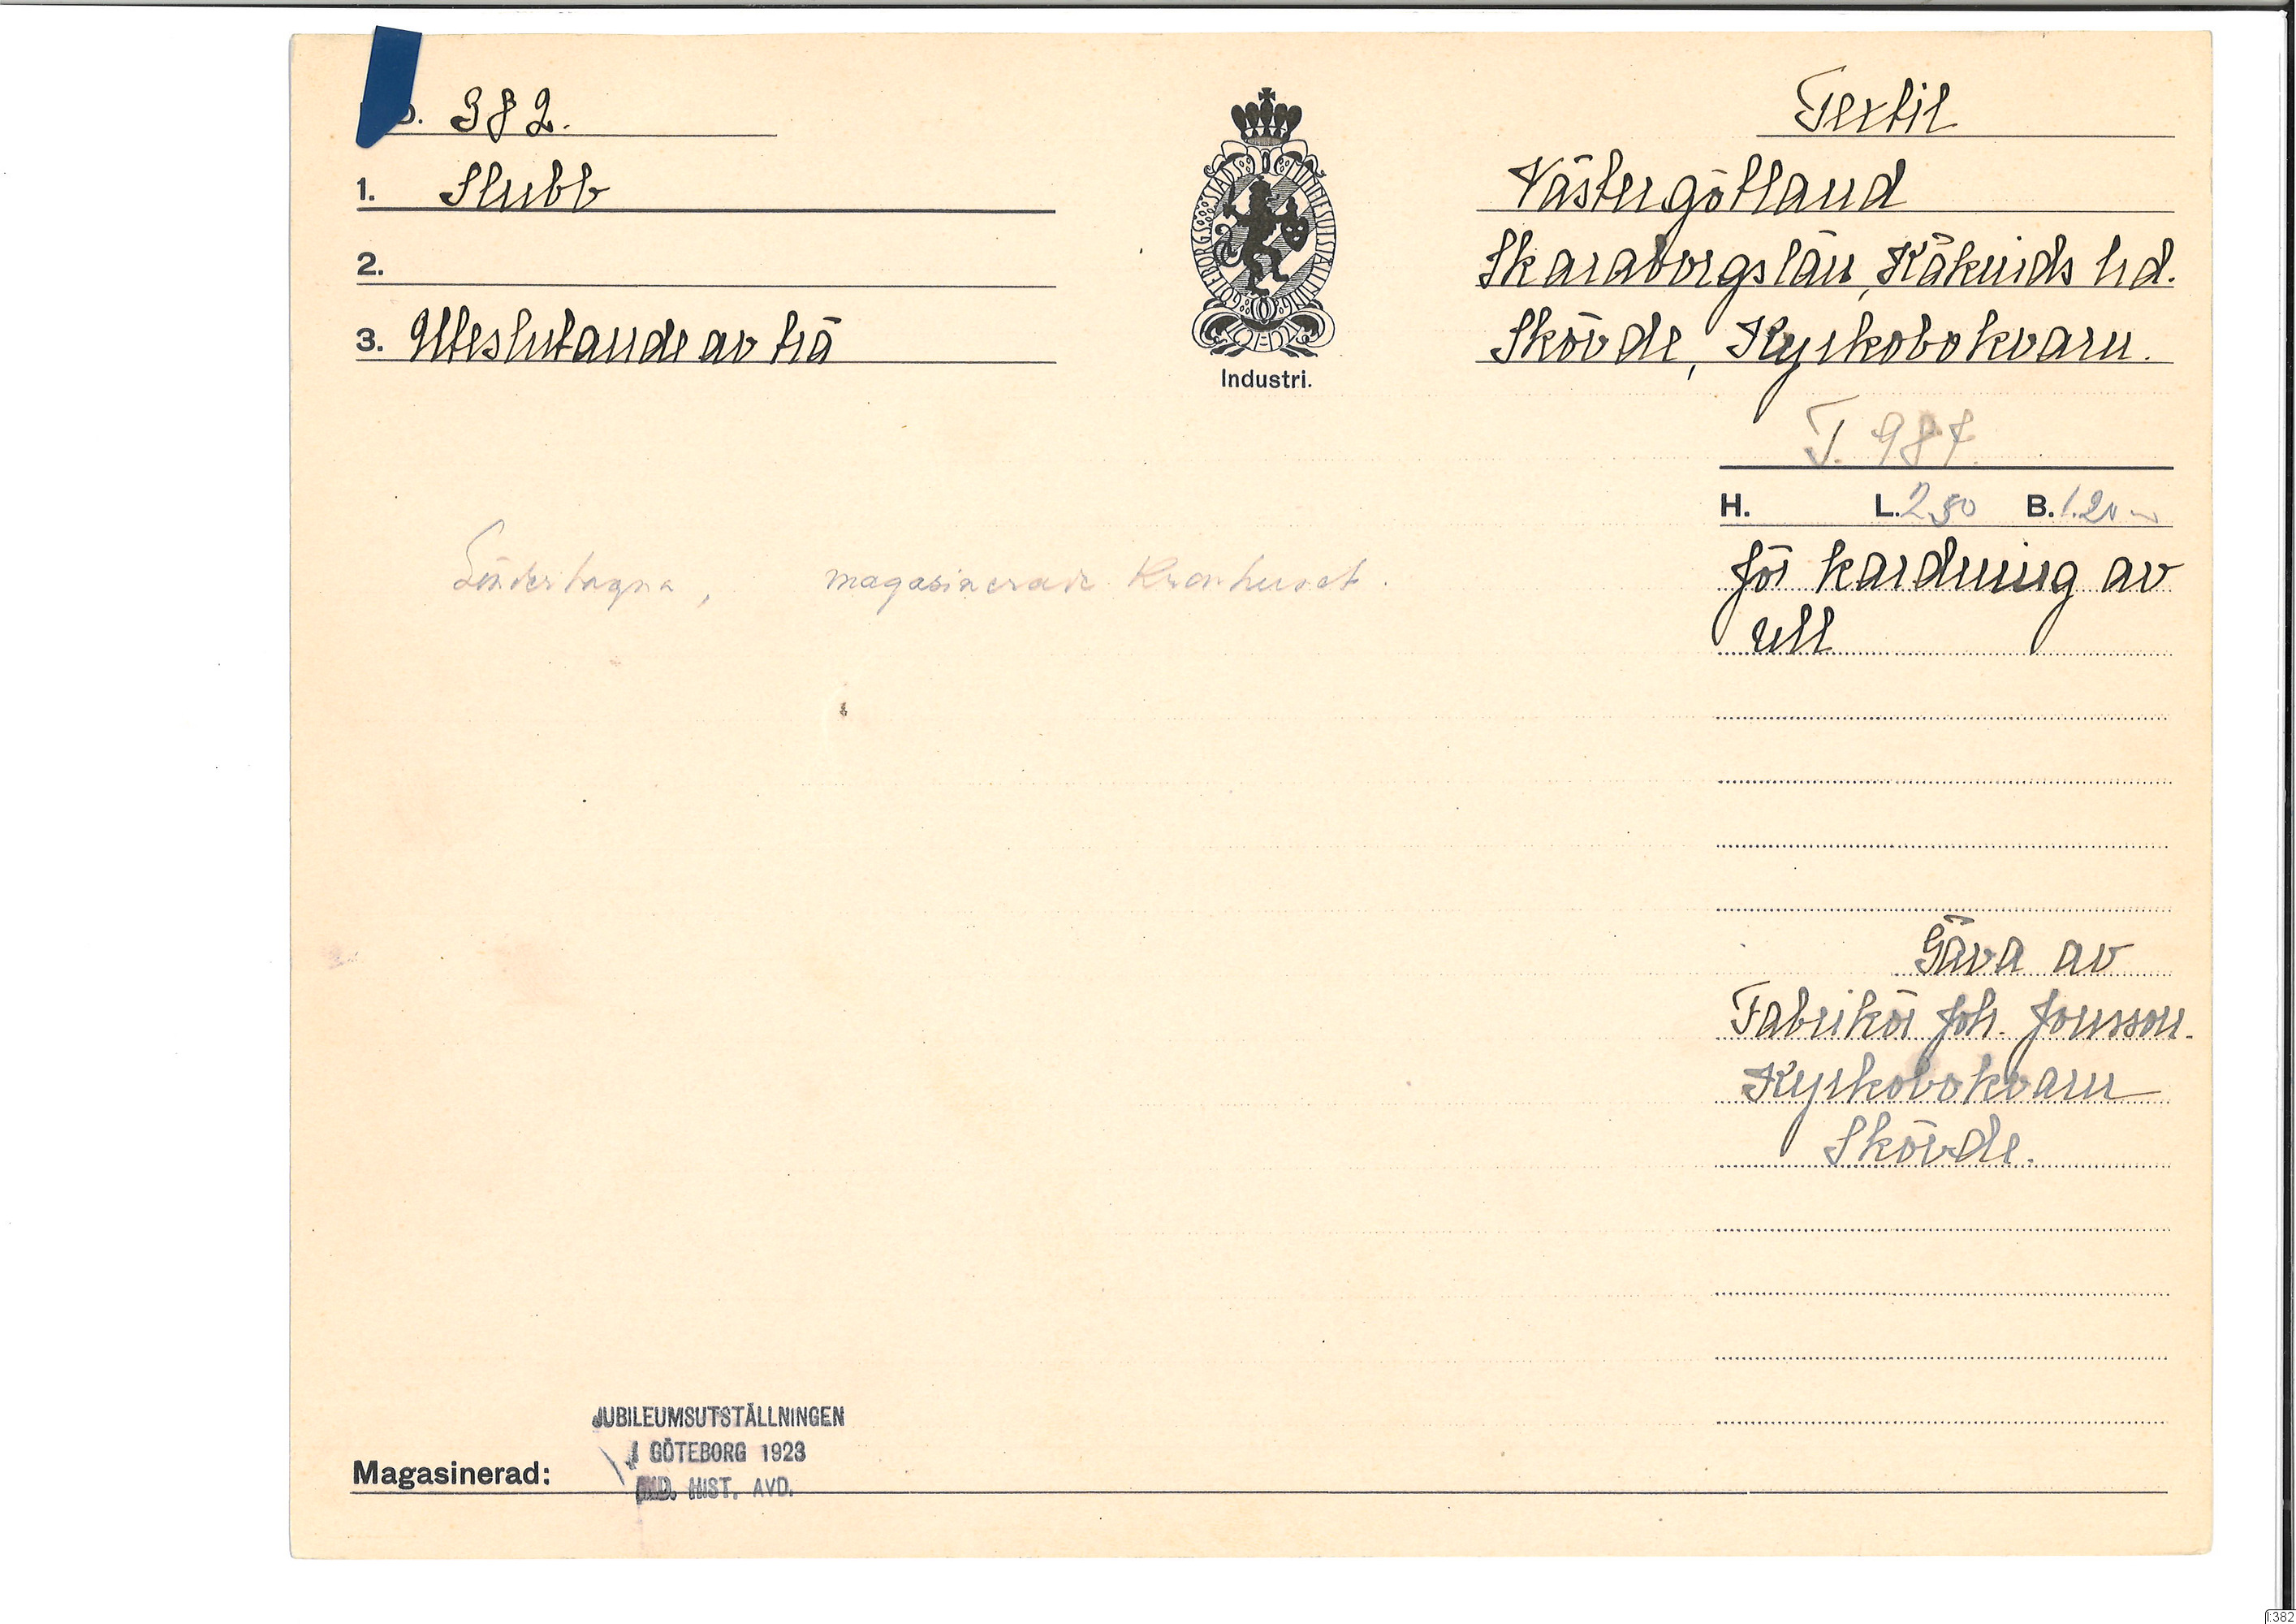 382.
1. Slubb
2.
3. Uteslutande av trä
GÖTEBORGS STADS MINNESUTSTÄLLNING
Industri.
Textil
Västergötland
Skaraborgs län, Kåkinds hd.
Skövde, Kyrkobokvarn.
T. 987.
H. L. 2.50 B. 1.20
för kardning av
ull
Söndertagna, magasinerade Kronhuset.
Gåva av
Fabrikör Joh. Jonsson.
Kyrkobokvarn
Skövde.
JUBILEUMSUTSTÄLLNINGEN
I GÖTEBORG 1923
IND. HIST. AVD.
Magasinerad:
I:382